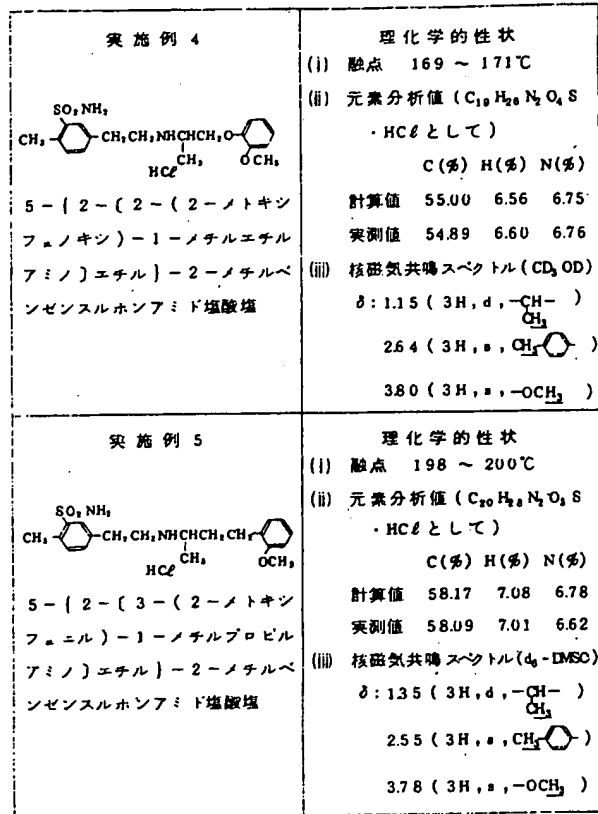 実施例4
SO₂NH₂
CH₃ CH₂CH₂NHCHCH₂O
CH₃ OCH₃
HCℓ
5-{2-〔2-(2-メトキシ
フェノキシ)-1-メチルエチル
アミノ〕エチル}-2-メチルベ
ンゼンスルホンアミド塩酸塩
理化学的性状
(i) 融点 169~171℃
(ii) 元素分析値(C₁₉H₂₆N₂O₄S
・HCℓとして)
C(%) H(%) N(%)
計算値 55.00 6.56 6.75
実測値 54.89 6.60 6.76
(iii) 核磁気共鳴スペクトル(CD₃OD)
δ:1.15(3H,d,-CH-)
CH₃
2.64(3H,s,CH₃-)
3.80(3H,s,-OCH₃)
実施例5
SO₂NH₂
CH₃ CH₂CH₂NHCHCH₂CH₂
CH₃ OCH₃
HCℓ
5-{2-〔3-(2-メトキシ
フェニル)-1-メチルプロピル
アミノ〕エチル}-2-メチルベ
ンゼンスルホンアミド塩酸塩
理化学的性状
(i) 融点 198~200℃
(ii) 元素分析値(C₂₀H₂₈N₂O₃S
・HCℓとして)
C(%) H(%) N(%)
計算値 58.17 7.08 6.78
実測値 58.09 7.01 6.62
(iii) 核磁気共鳴スペクトル(d₆-DMSO)
δ:1.35(3H,d,-CH-)
CH₃
2.55(3H,s,CH₃-)
3.78(3H,s,-OCH₃)